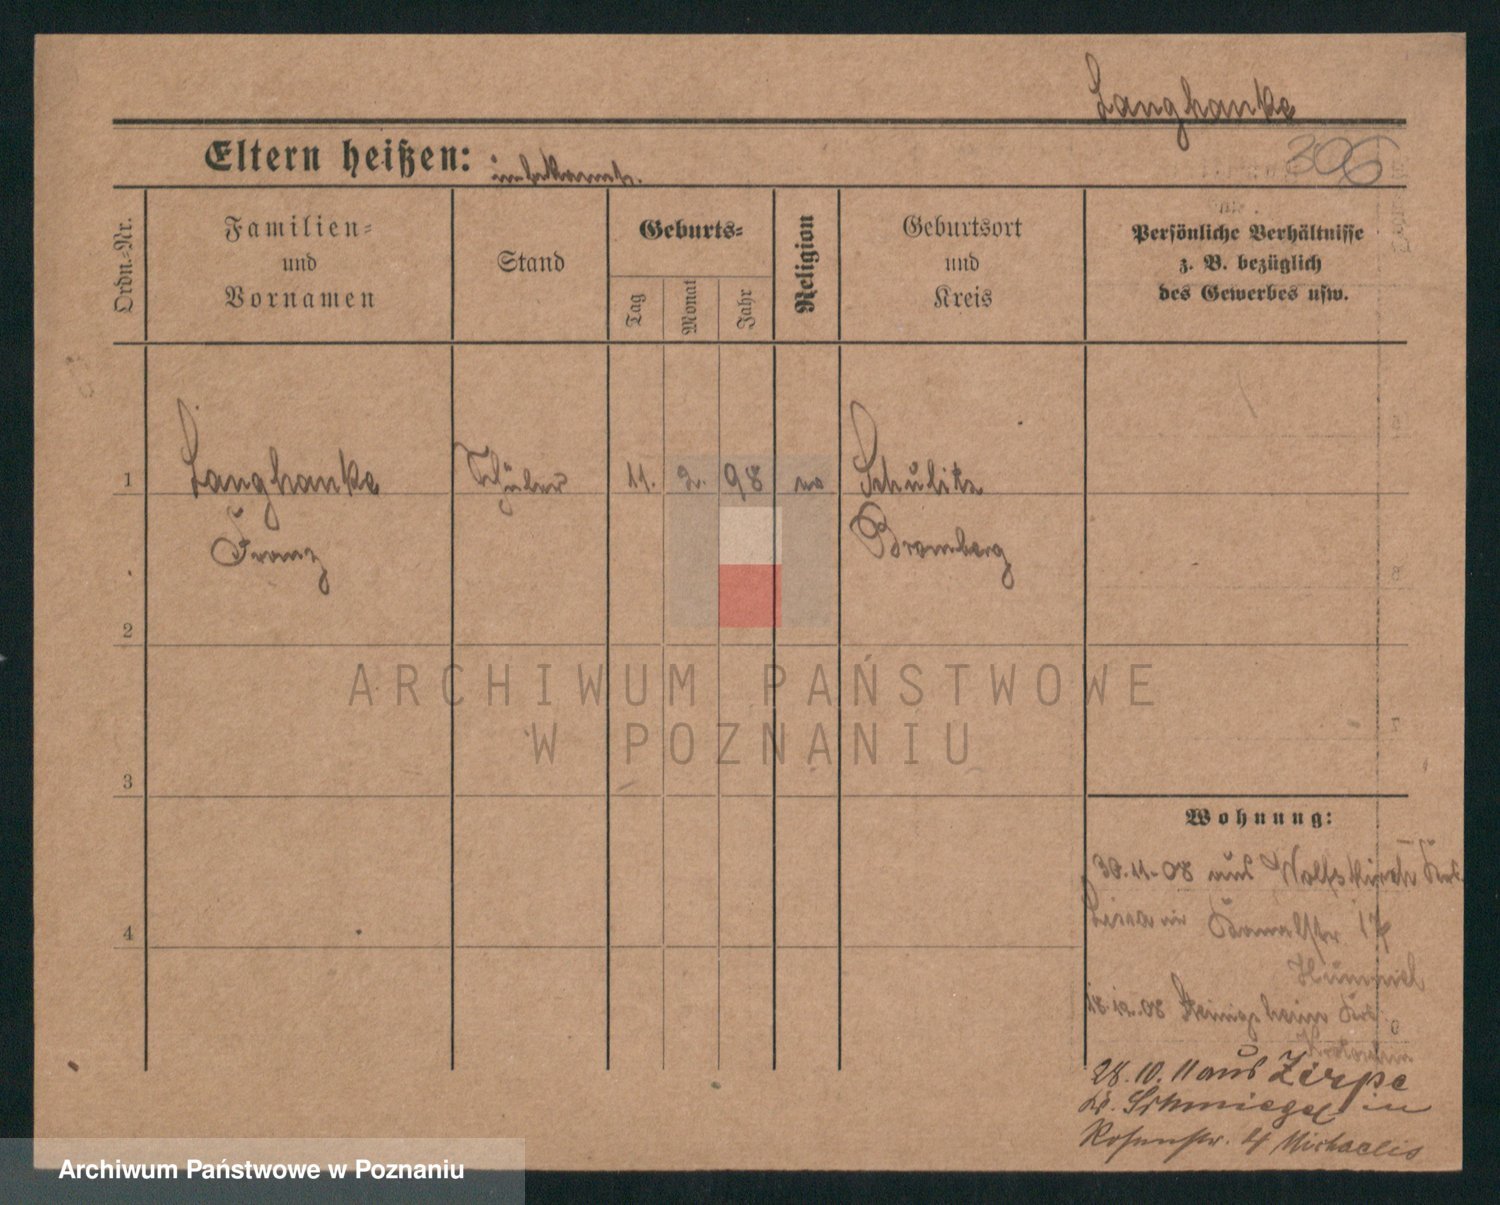 Langhanke
306
Eltern heißen: unbekannt.
Ordn.-Nr.
Familien=
und
Vornamen
Stand
Geburts=
Tag
Monat
Jahr
Religion
Geburtsort
und
Kreis
Persönliche Verhältnisse
z. B. bezüglich
des Gewerbes usw.
1 Langhanke 11. 2. 98 Schulitz
Franz Bromberg
2
3
4
Wohnung:
30.11.08 aus Wolfskirch Krs.
Lissa in 17
Hummel
18.12.08 Krs
28.10.11 aus Zirpe
Kr. Schmiegel in
Rosenstr. 4 Michaelis
ARCHIWUM PAŃSTWOWE
W POZNANIU
Archiwum Państwowe w Poznaniu